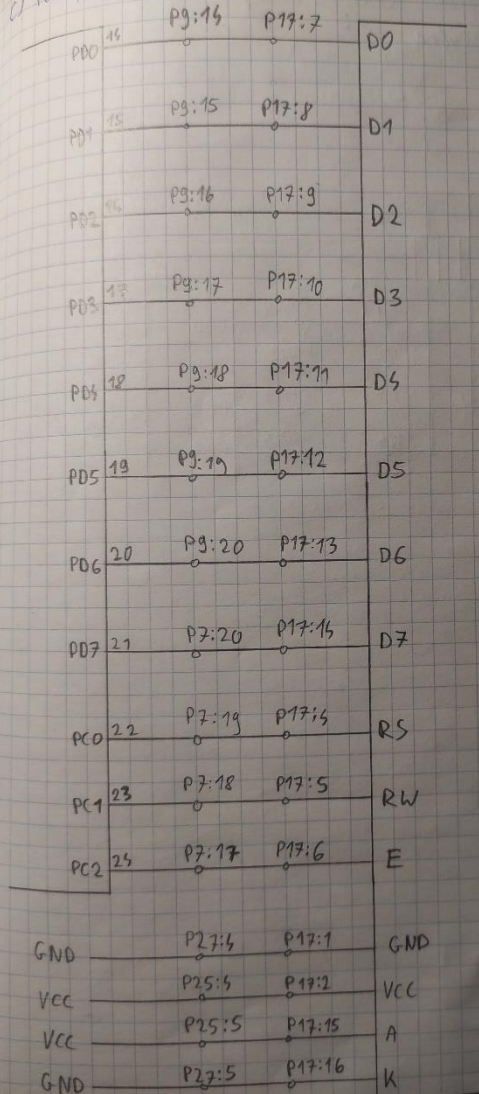 PD0 14 P9:14 P17:7 D0
PD1 15 P9:15 P17:8 D1
PD2 16 P9:16 P17:9 D2
PD3 17 P9:17 P17:10 D3
PD4 18 P9:18 P17:11 D4
PD5 19 P9:19 P17:12 D5
PD6 20 P9:20 P17:13 D6
PD7 21 P7:20 P17:14 D7
PC0 22 P7:19 P17:4 RS
PC1 23 P7:18 P17:5 RW
PC2 24 P7:17 P17:6 E
GND P27:4 P17:1 GND
VCC P25:4 P17:2 VCC
VCC P25:5 P17:15 A
GND P27:5 P17:16 K